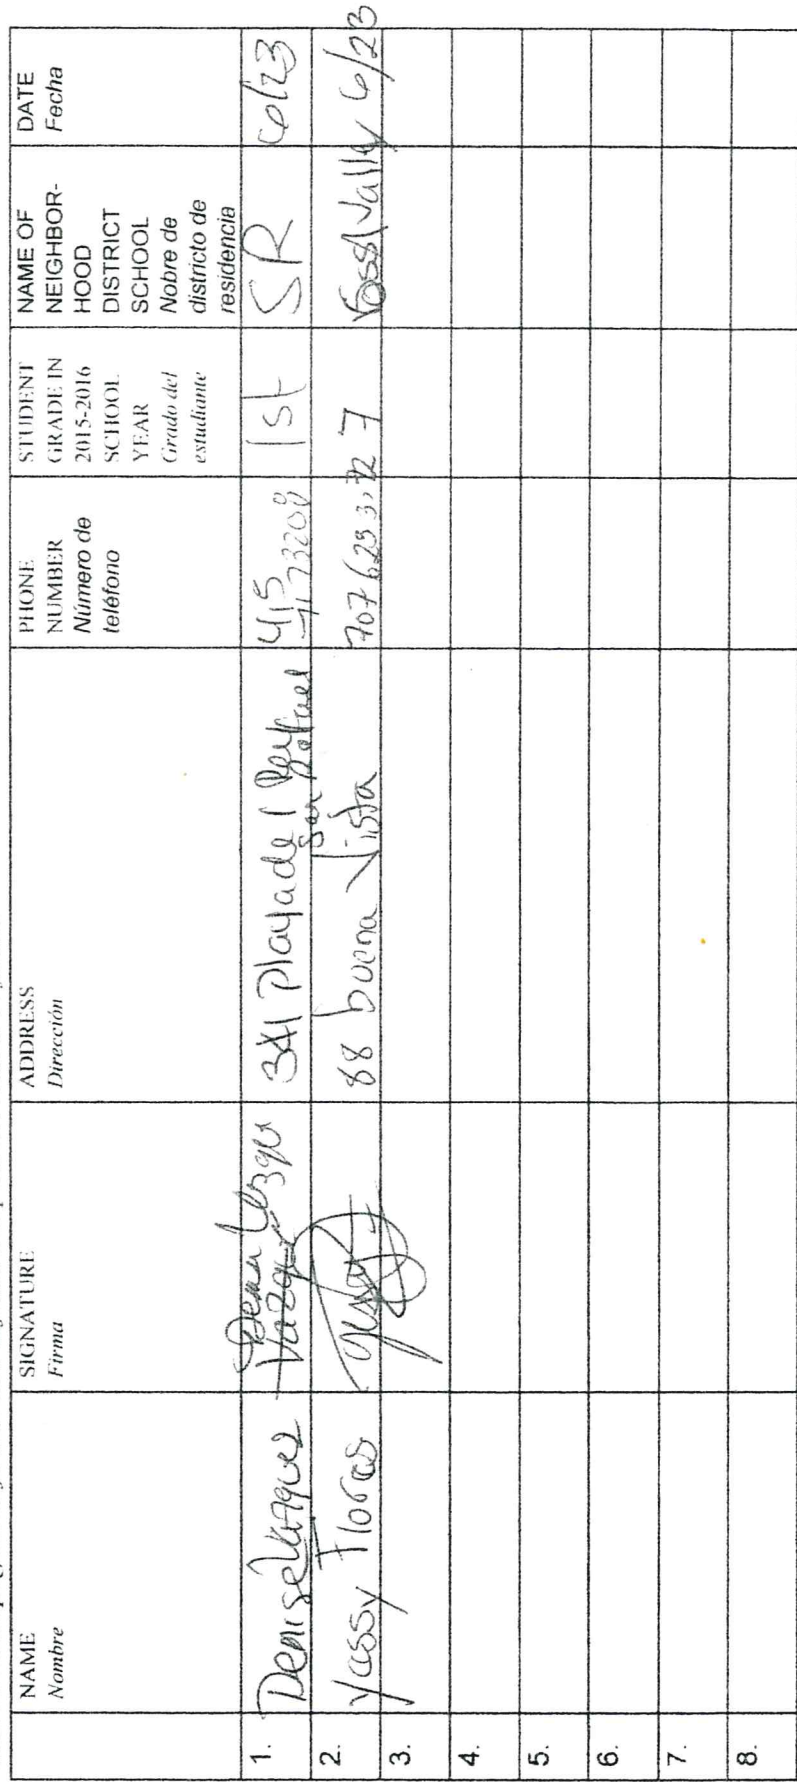 NAME
Nombre
SIGNATURE
Firma
ADDRESS
Dirección
PHONE
NUMBER
Número de
teléfono
STUDENT
GRADE IN
2015-2016
SCHOOL
YEAR
Grado del
estudiante
NAME OF
NEIGHBOR-
HOOD
DISTRICT
SCHOOL
Nobre de
districto de
residencia
DATE
Fecha
1. Denise Vazquez 341 Playa del Rey San Rafael 415 1st SR 6/23
2. Yassy Flores 88 buena Vista Vally 6/23
3.
4.
5.
6.
7.
8.